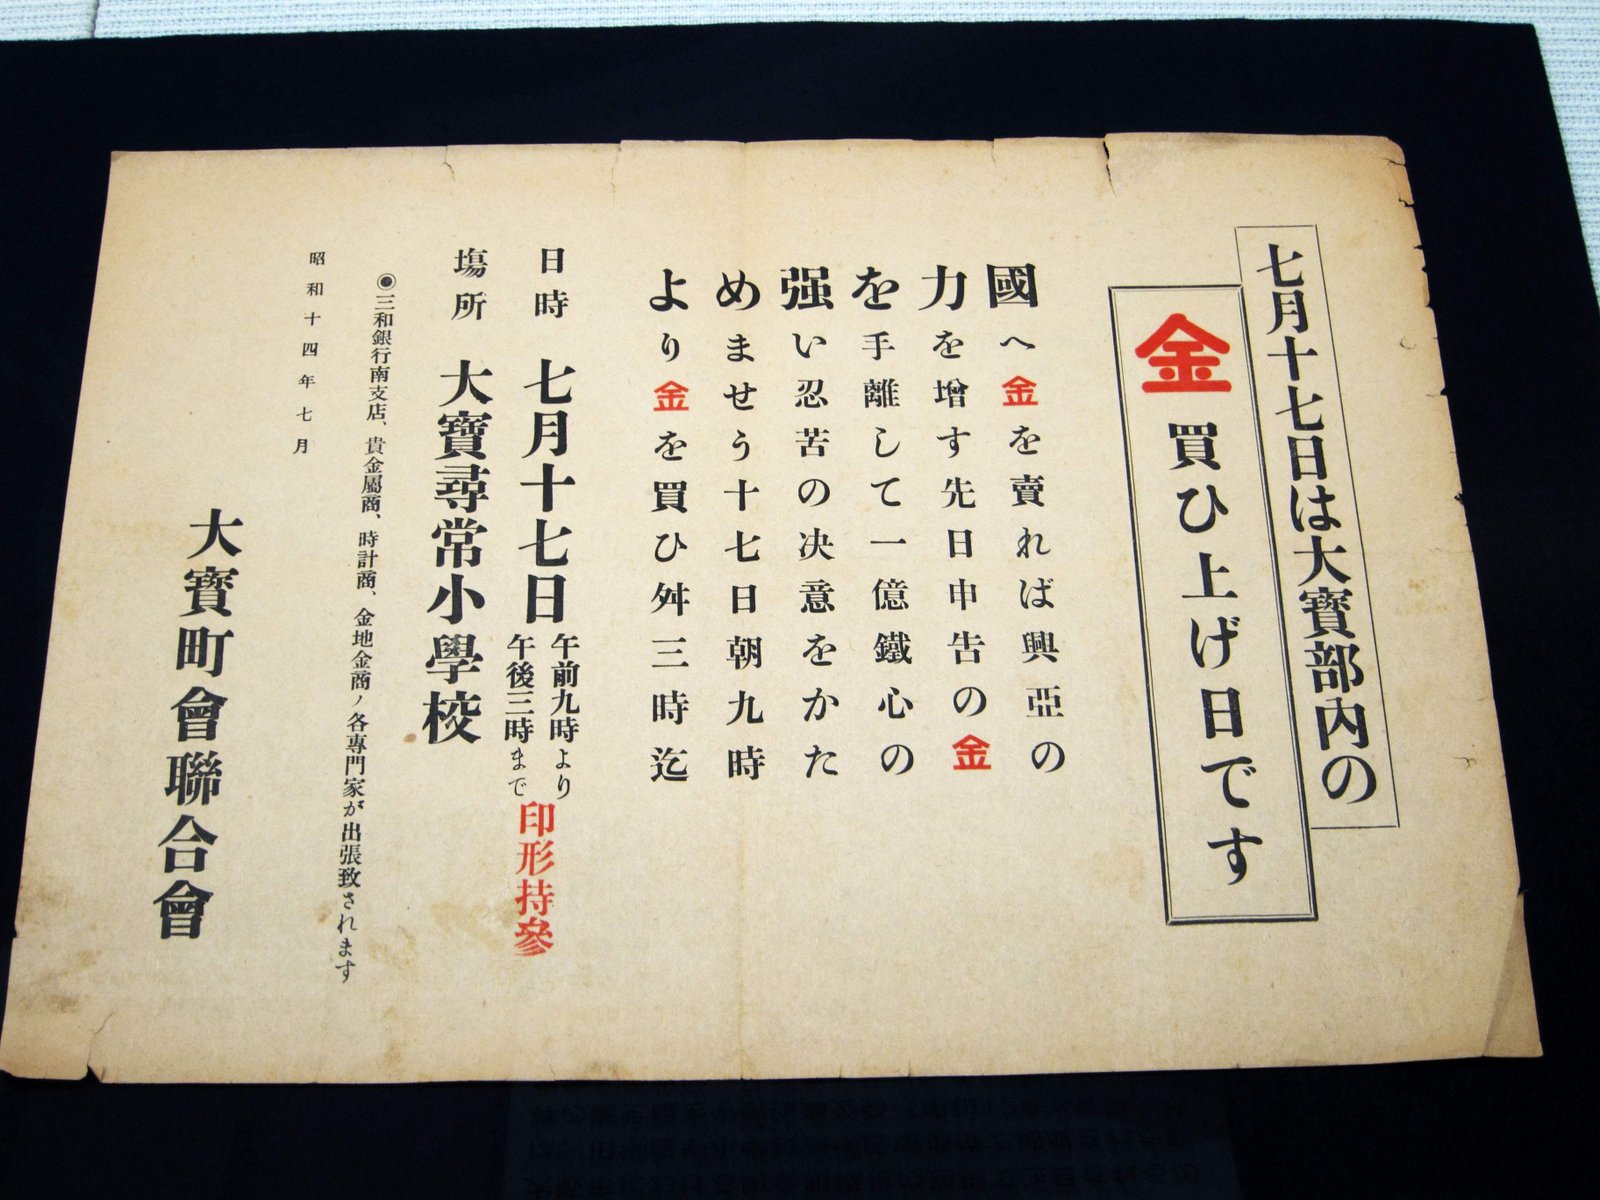 七月十七日は大寶部内の
金買ひ上げ日です
國へ金を賣れば興亞の
力を增す先日申告の金
を手離して一億鐵心の
强い忍苦の决意をかた
めませう十七日朝九時
より金を買ひ舛三時迄
日時 七月十七日 午前九時より
午後三時まで 印形持參
塲所 大寶尋常小學校
◉三和銀行南支店、貴金屬商、時計商、金地金商ノ各專門家が出張致されます
昭和十四年七月
大寶町會聯合會